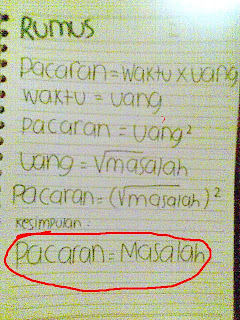 RUMUS
Pacaran=waktu x uang
waktu = uang
pacaran = uang²
uang = √masalah
Pacaran=(√masalah)²
Kesimpulan :
Pacaran=Masalah